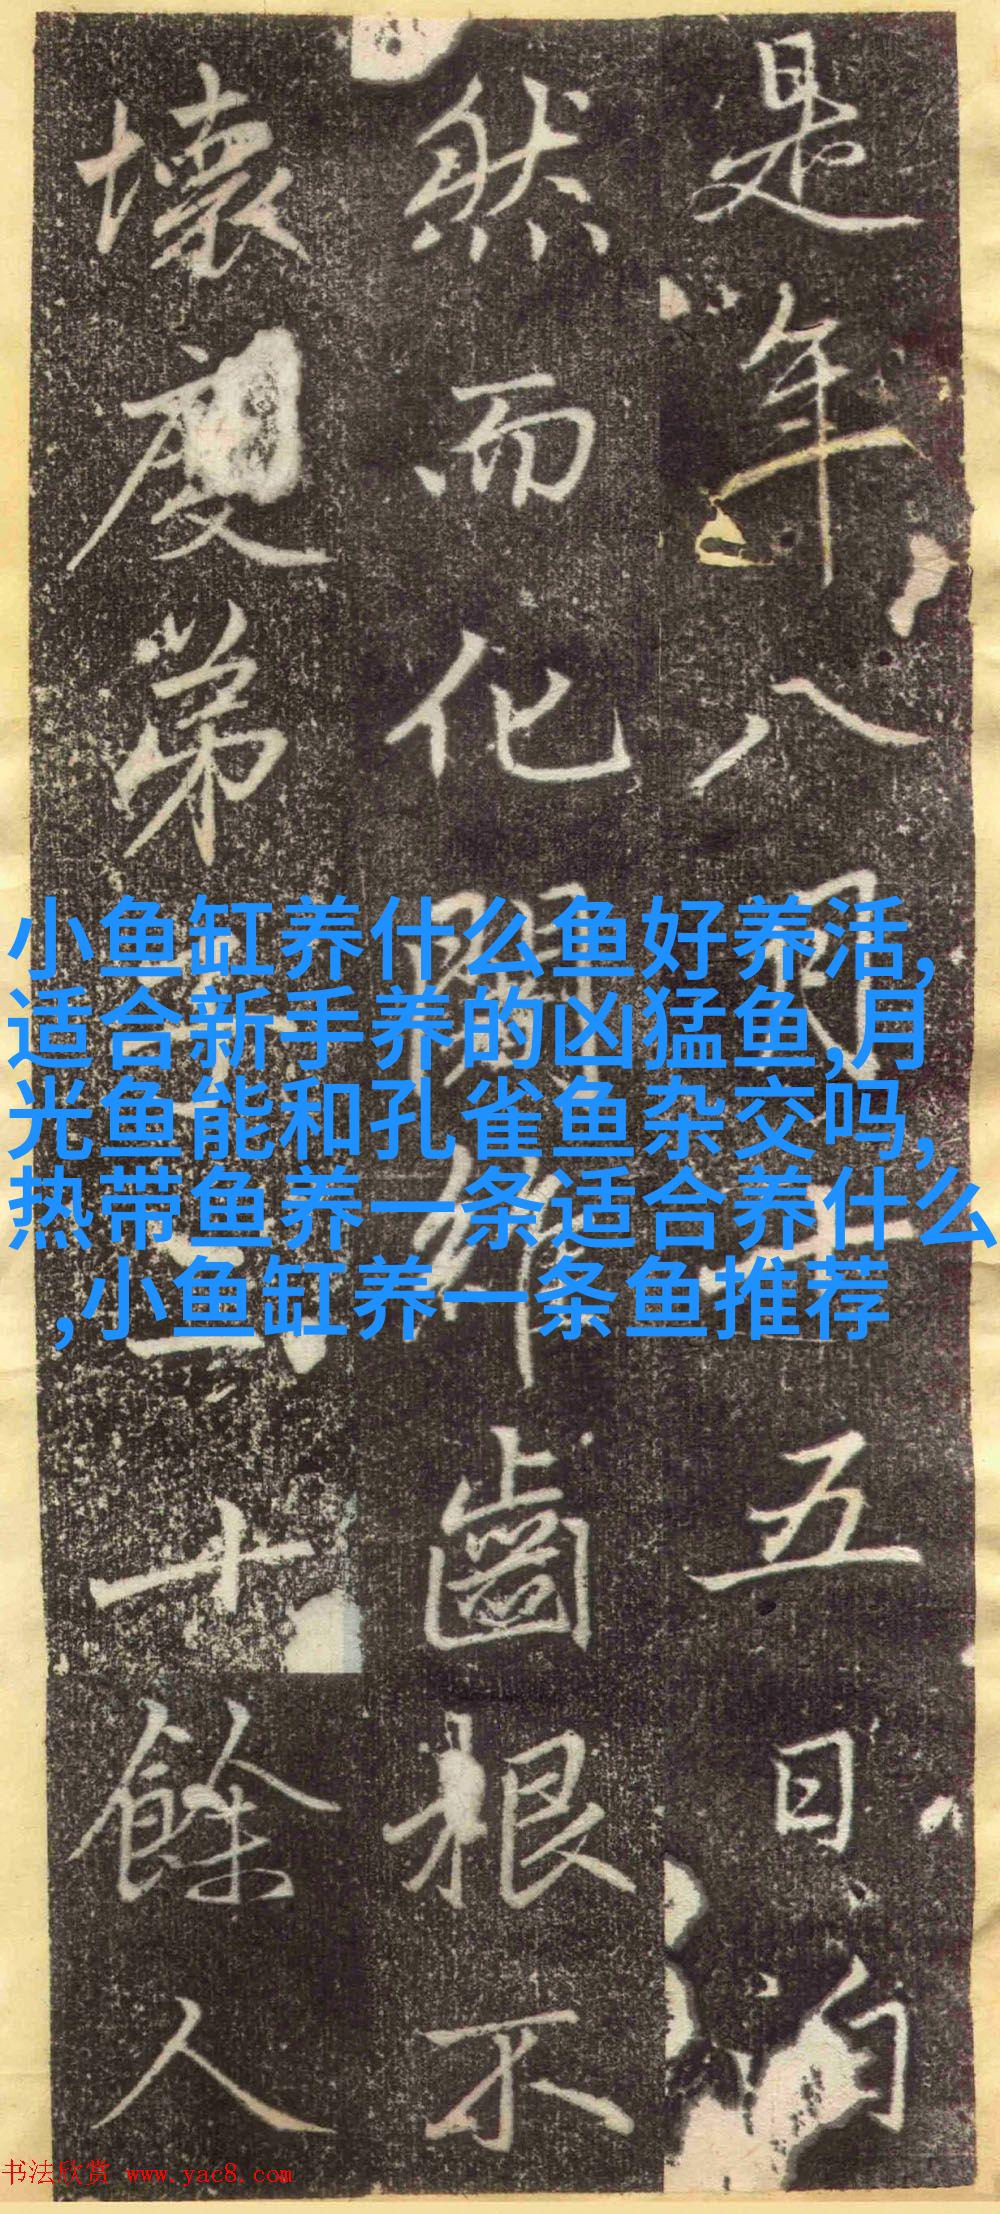 是年八月十五日
然而化齒根不
壞度弟十餘人
小鱼缸养什么鱼好养活,
适合新手养的凶猛鱼,月
光鱼能和孔雀鱼杂交吗,
热带鱼养一条适合养什么
,小鱼缸养一条鱼推荐
书法欣赏 www.yac8.com